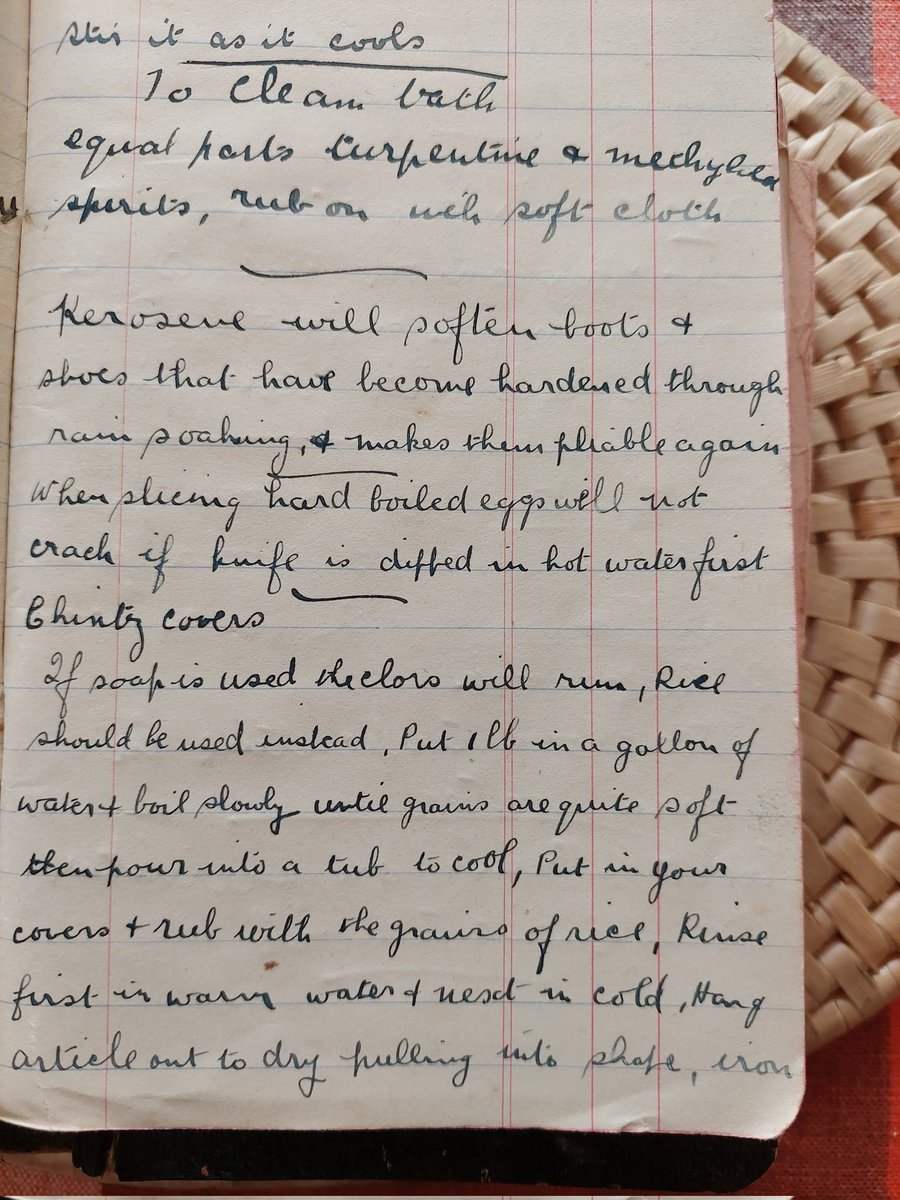 stir it as it cools
To Clean bath
equal parts turpentine & methylated
spirits, rub on with soft cloth
Kerosene will soften boots &
shoes that have become hardened through
rain soaking, & makes them pliable again
When slicing hard boiled eggs will not
crack if knife is dipped in hot water first
Chintz covers
If soap is used the clors will run, Rice
should be used instead, Put 1 lb in a gallon of
water & boil slowly until grains are quite soft
then pour into a tub to cool, Put in your
covers & rub with the grains of rice, Rinse
first in warm water & next in cold, Hang
article out to dry pulling into shape, iron